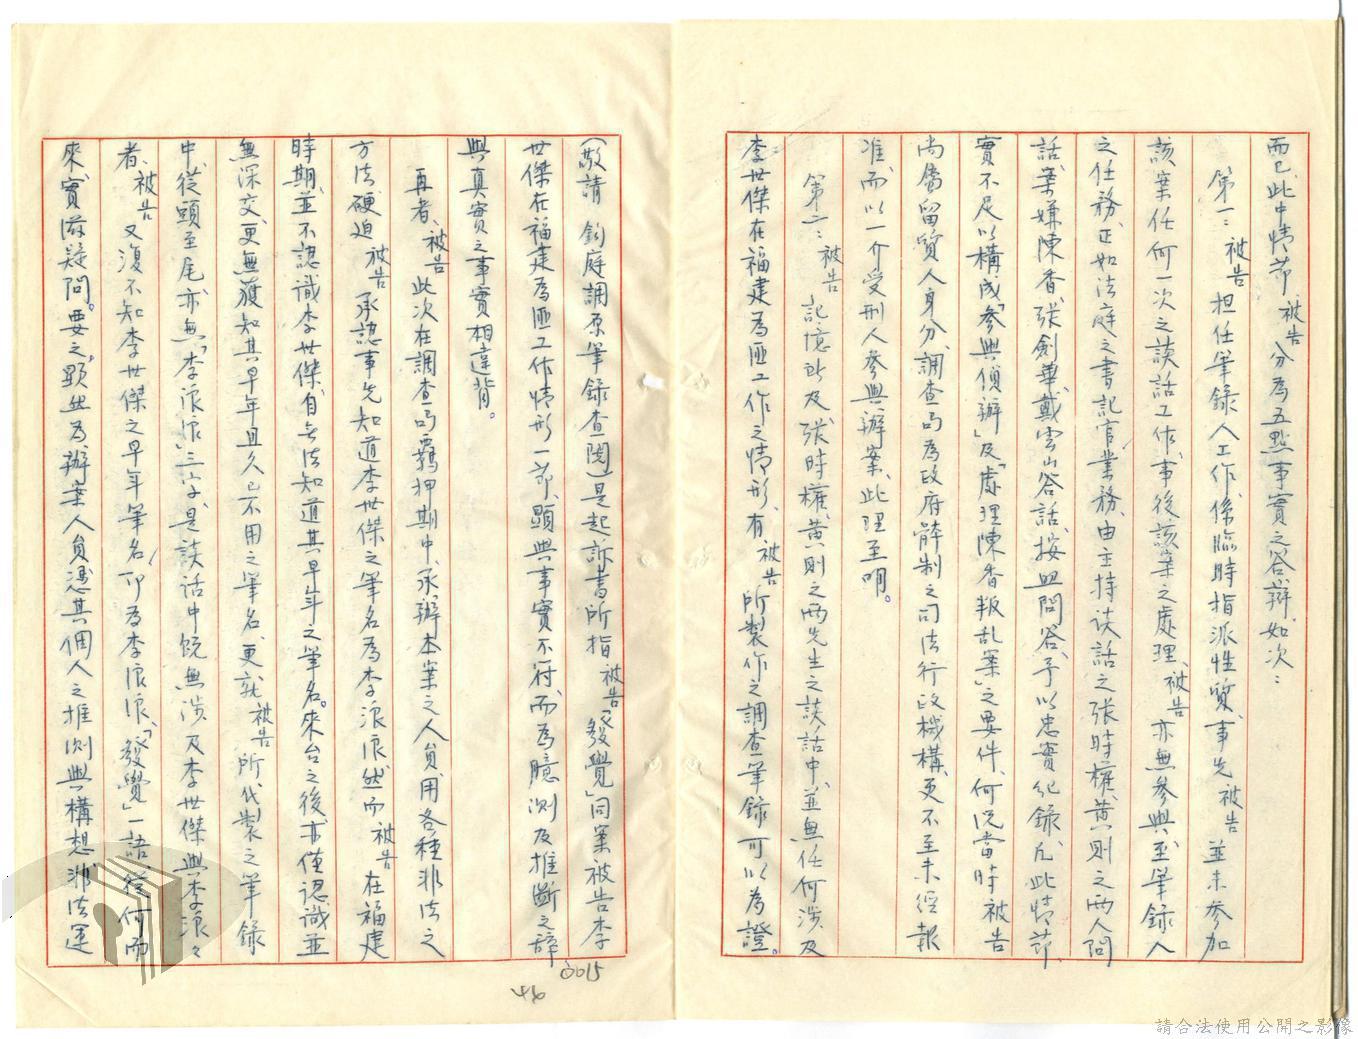 而已、此中情節、被告分為五點事實之答辯、如次：
第一：被告担任筆錄人工作、係臨時指派性質、事先被告並未參加
該案任何一次之談話工作、事後該案之處理、被告亦無參與、至筆錄人
之任務、正如法庭之書記官業務、由主持談話之張時權、黃則之兩人問
話、案嫌陳香、張劍華、戴雲山答話、按照問答、予以忠實紀錄、凡此情節、
實不足以構成「參與偵辦」及「處理陳香叛乱案」之要件、何況當時被告
尚屬留質人身分、調查局為政府體制之司法行政機構、更不至未經報
准、而以一介受刑人參與辦案、此理至明。
第二：被告記憶所及、張時權、黃則之兩先生之談話中、並無任何涉及
李世傑在福建為匪工作之情形、有被告所製作之調查筆錄可以為證。
（敬請 鈞庭調原筆錄查閱）是起訴書所指被告「發覺」同案被告李
世傑在福建為匪工作情形一節、顯與事實不符、而為臆測及推斷之辞、
與真實之事實相違背。
再者、被告此次在調查局羈押期中、承辦本案之人員用各種非法之
方法、硬迫被告承認事先知道李世傑之筆名為李浪浪、然而被告在福建
時期、並不認識李世傑、自無法知道其早年之筆名。來台之後亦僅認識並
無深交、更無獲知其早年且久已不用之筆名、更就被告所代製之筆錄
中、從頭至尾、亦無「李浪浪」三字、是談話中既無涉及李世傑與李浪々
者、被告又復不知李世傑之早年筆名、即為李浪浪、「發覺」一語、從何而
來、實滋疑問。要之、顯然為辦案人員憑其個人之推測與構想非法運
0015
46
請合法使用公開之影像